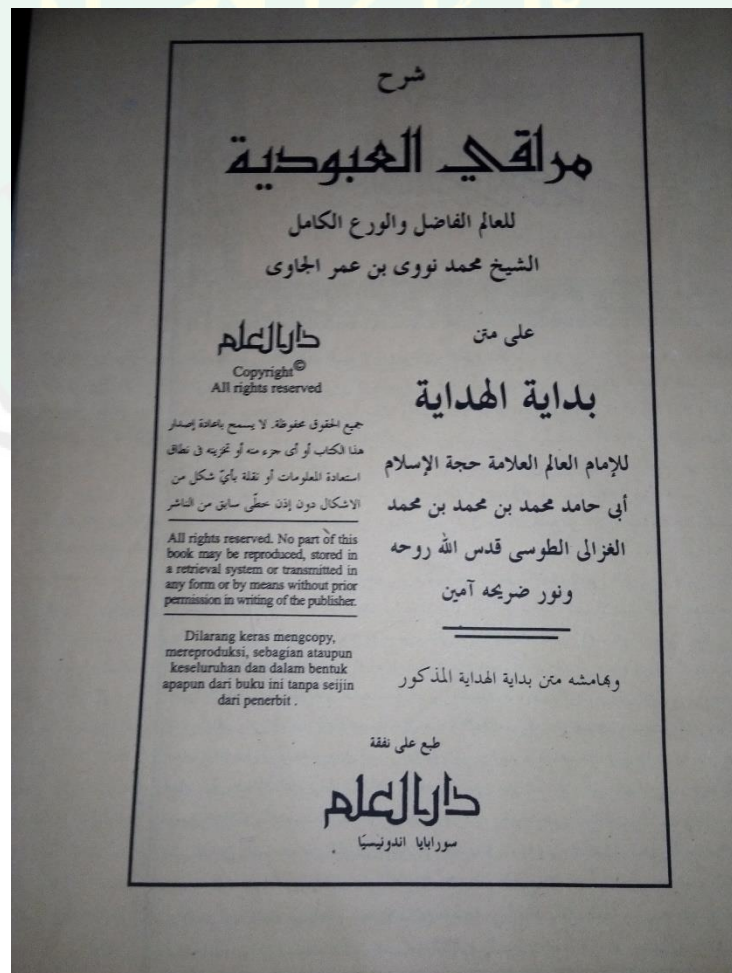 شرح
مراقي العبودية
للعالم الفاضل والورع الكامل
الشيخ محمد نووى بن عمر الجاوى
على متن
بداية الهداية
للإمام العالم العلامة حجة الإسلام
أبى حامد محمد بن محمد بن محمد
الغزالى الطوسى قدس الله روحه
ونور ضريحه آمين
وبهامشه متن بداية الهداية المذكور
دار العلم
Copyright©
All rights reserved
جميع الحقوق محفوظة. لا يسمح باعادة إصدار
هذا الكتاب أو أى جزء منه أو تخزينه فى نطاق
استعادة المعلومات أو نقلة بأيّ شكل من
الاشكال دون إذن خطّى سابق من الناشر
All rights reserved. No part of this
book may be reproduced, stored in
a retrieval system or transmitted in
any form or by means without prior
permission in writing of the publisher.
Dilarang keras mengcopy,
mereproduksi, sebagian ataupun
keseluruhan dan dalam bentuk
apapun dari buku ini tanpa seijin
dari penerbit .
طبع على نفقة
دار العلم
سورابايا اندونيسيا